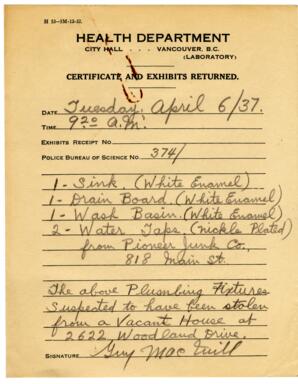 H 53-5M-12-35.
HEALTH DEPARTMENT
CITY HALL . . . VANCOUVER, B.C.
(LABORATORY)
CERTIFICATE AND EXHIBITS RETURNED.
DATE Tuesday. April 6/37.
TIME 9²⁰ A.M.
EXHIBITS RECEIPT NO.
POLICE BUREAU OF SCIENCE NO. 3741
1 - Sink. (White Enamel)
1 - Drain Board. (White Enamel)
1 - Wash Basin. (White Enamel)
2 - Water Taps. (Nickle Plated)
from Pioneer Junk Co.,
818 Main St.
The above Plumbing Fixtures
suspected to have been stolen
from a Vacant House at
2622 Woodland Drive.
SIGNATURE Guy